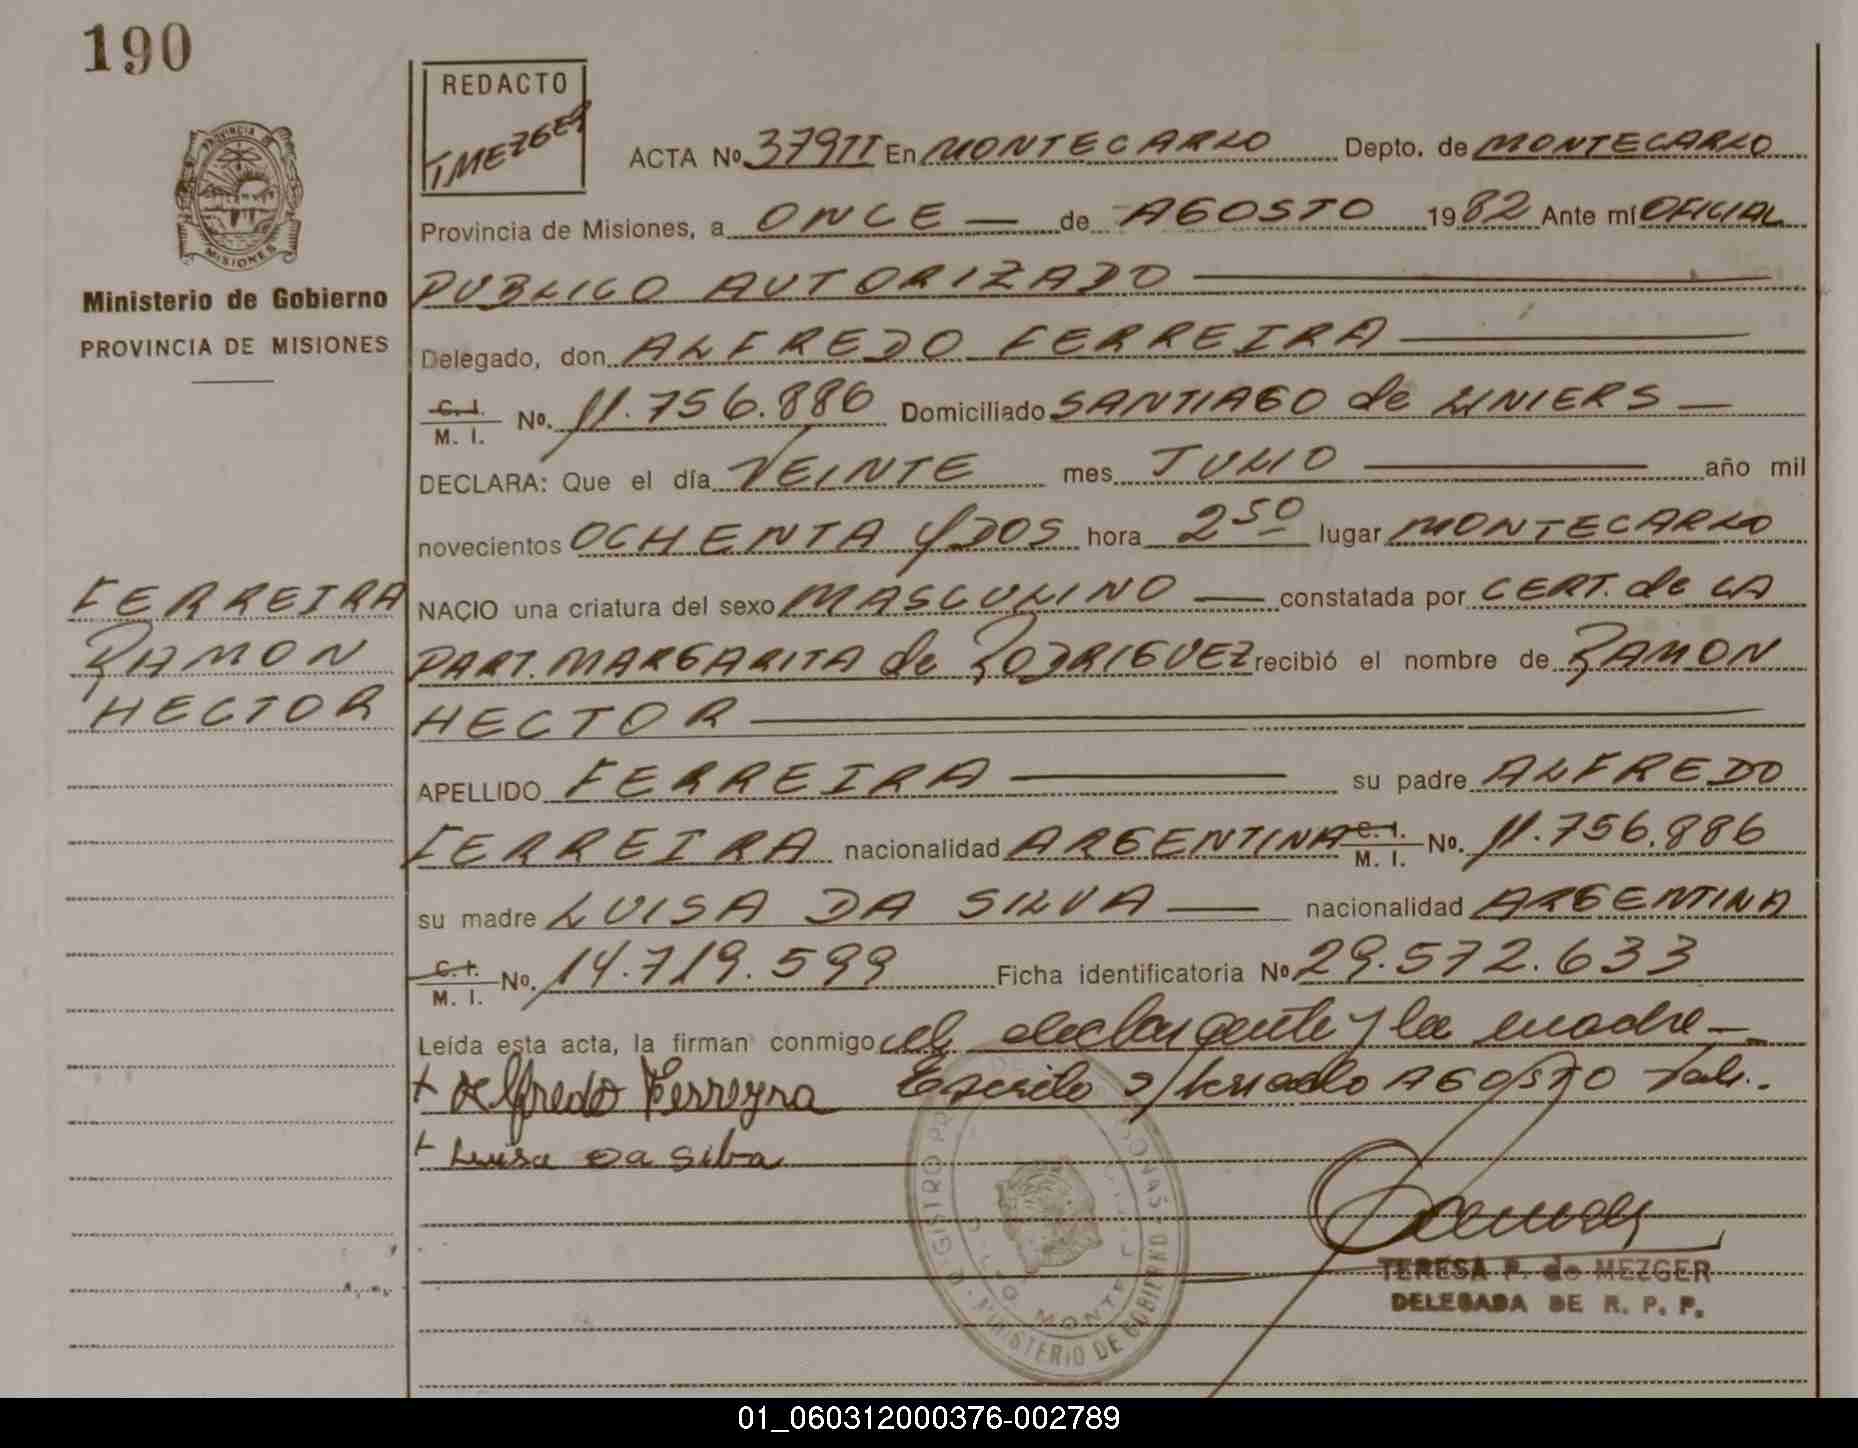 190
REDACTO
TMEZGER
PROVINCIA DE
MISIONES
Ministerio de Gobierno
PROVINCIA DE MISIONES
ACTA Nº 379II En MONTECARLO Depto. de MONTECARLO
Provincia de Misiones, a ONCE — de AGOSTO 1982 Ante mí OFICIAL
PUBLICO AUTORIZADO
Delegado, don ALFREDO FERREIRA
C. I. / M. I. No. 11.756.886 Domiciliado SANTIAGO de LINIERS —
DECLARA: Que el día VEINTE mes JULIO año mil
novecientos OCHENTA y DOS hora 2 50 lugar MONTECARLO
NACIO una criatura del sexo MASCULINO — constatada por CERT. de LA
PART. MARGARITA de RODRIGUEZ recibió el nombre de RAMON
HECTOR
FERREIRA
RAMON
HECTOR
APELLIDO FERREIRA — su padre ALFREDO
FERREIRA nacionalidad ARGENTINA C. I. / M. I. No. 11.756.886
su madre LUISA DA SILVA — nacionalidad ARGENTINA
C. I. / M. I. No. 14.719.599 Ficha identificatoria Nº 29.572.633
Leída esta acta, la firman conmigo el declarante y la madre —
+ Alfredo Ferreyra Escrito s/borrado AGOSTO Vale.
+ Luisa Da Silba
TERESA P. de MEZGER
DELEGADA DE R. P. P.
MINISTERIO DE GOBIERNO
01_060312000376-002789